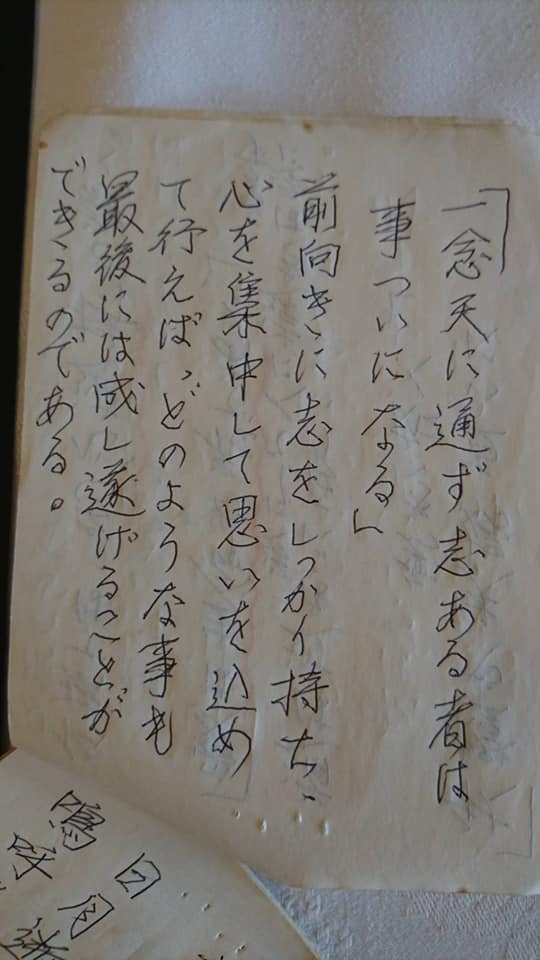 「一念天に通ず志ある者は
事ついになる」
前向きに志をしっかり持ち、
心を集中して思いを込め
て行えば、どのような事も
最後には成し遂げることが
できるのである。
日月
鳴呼